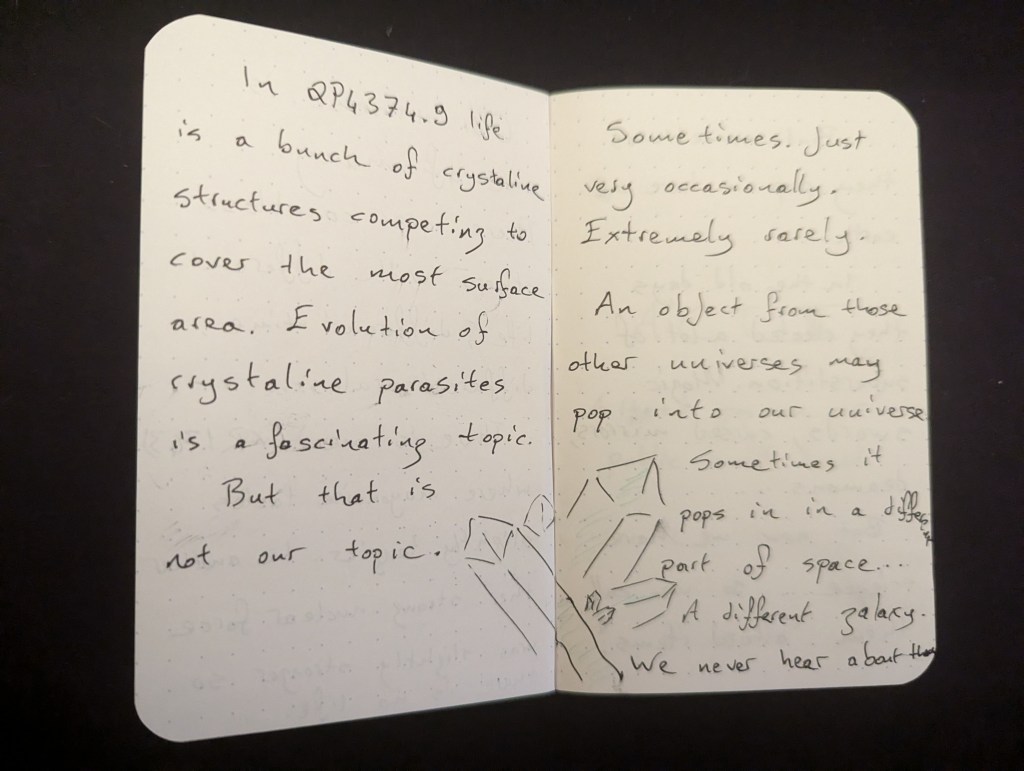 In QP4374.9 life
is a bunch of crystaline
structures competing to
cover the most surface
area. Evolution of
crystaline parasites
is a fascinating topic.
But that is
not our topic.
Sometimes. Just
very occasionally.
Extremely rarely.
An object from those
other universes may
pop into our universe
Sometimes it
pops in in a different
part of space...
A different galaxy.
We never hear about them